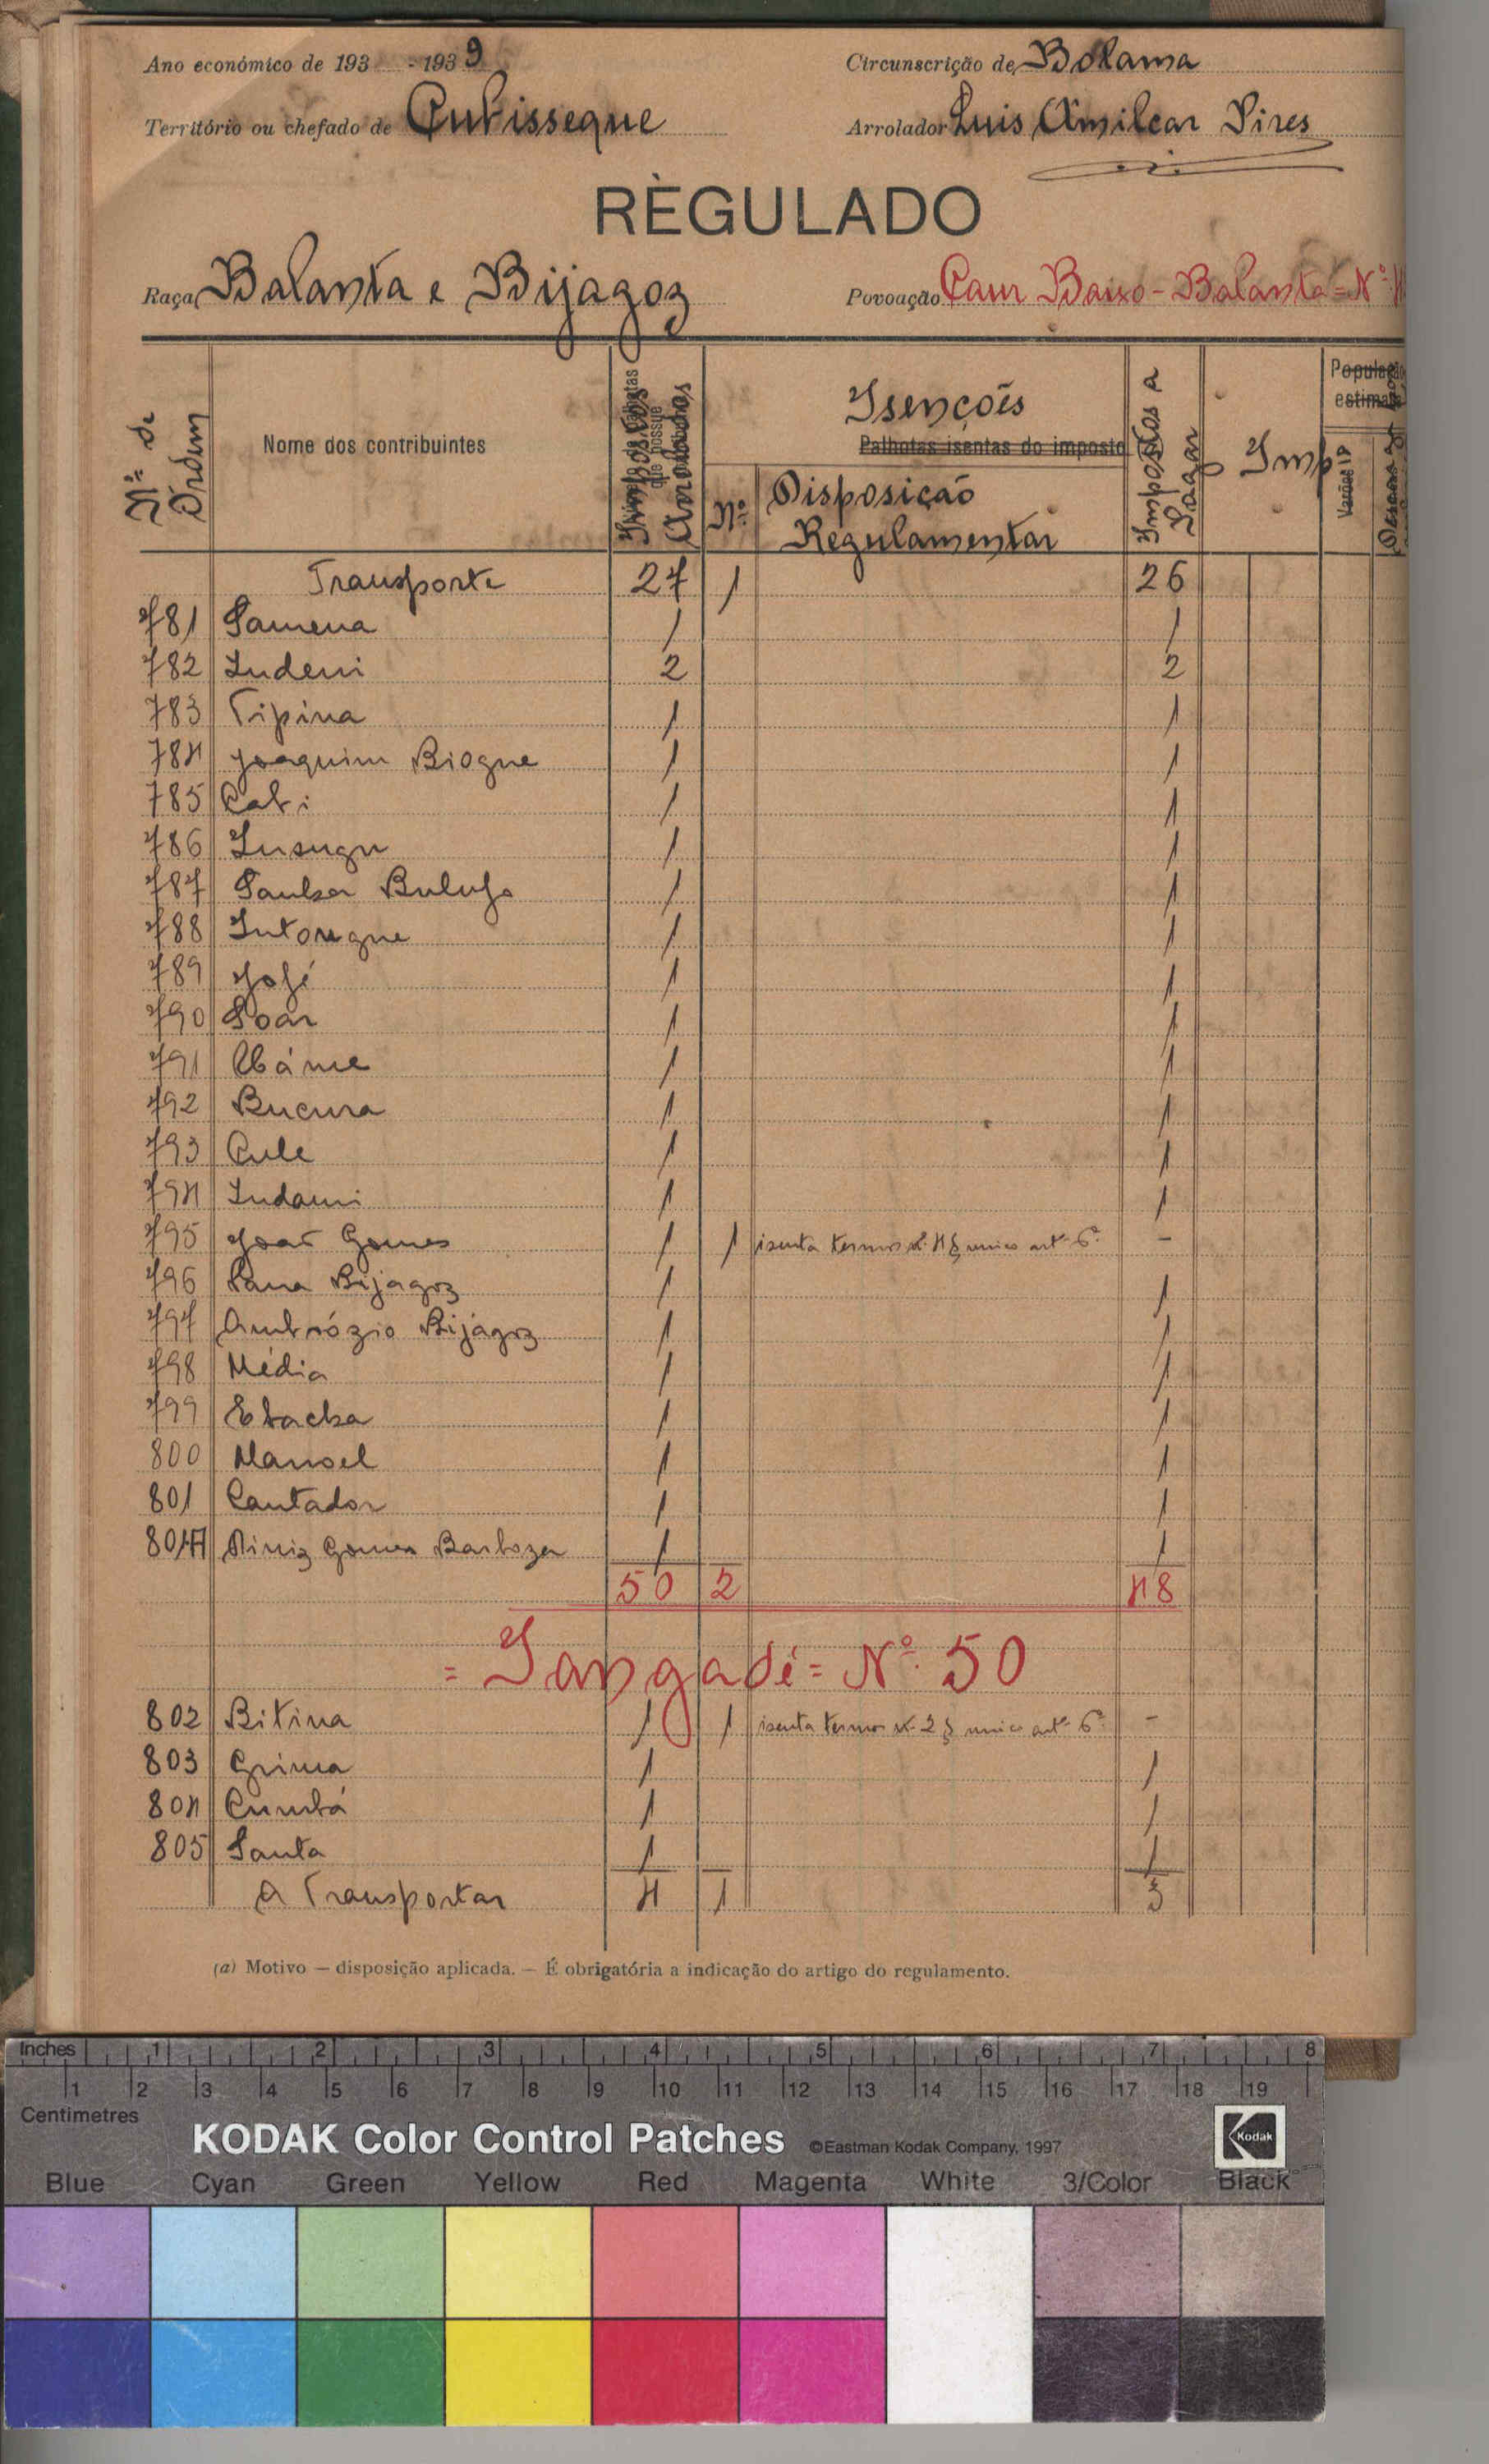 Ano económico de 193 - 1939
Circunscrição de Bolama
Território ou chefado de Cubisseque
Arrolador Luis Amilcar Pires
RÈGULADO
Raça Balanta e Bijagoz
Povoação Caur Baixo - Balanta = Nº
Nº de Ordem
Nome dos contribuintes
Impostos Arrolados
Isenções
Palhotas isentas do imposto
Nº
Disposição Regulamentar
Impostos a Pagar
Imp
Transporte 27 1 26
781 Samena 1 1
782 Indeni 2 2
783 Tipina 1 1
784 Joaquim Biogue 1 1
785 Cabi 1 1
786 Insugu 1 1
787 Sanha Bulufo 1 1
788 Intorigue 1 1
789 José 1 1
790 Soar 1 1
791 Abáme 1 1
792 Bucura 1 1
793 Cule 1 1
794 Indami 1 1
795 João Gomes 1 1 isenta termos nº 4 § unico artº 6º -
796 Pana Bijagoz 1 1
797 Ambrózio Bijagoz 1 1
798 Média 1 1
799 1 1
800 Manoel 1 1
801 Cantador 1 1
801-A Diniz Gomes Barboza 1 1
50 2 48
= Jangadé = Nº 50
802 Bitina 1 1 isenta termos nº 2 § unico artº 6º -
803 Grima 1 1
804 Cumbá 1 1
805 Santa 1 1
A Transportar 4 1 3
(a) Motivo — disposição aplicada. — É obrigatória a indicação do artigo do regulamento.
Inches 1 2 3 4 5 6 7 8
1 2 3 4 5 6 7 8 9 10 11 12 13 14 15 16 17 18 19
Centimetres
KODAK Color Control Patches ©Eastman Kodak Company, 1997 Kodak
Blue Cyan Green Yellow Red Magenta White 3/Color Black